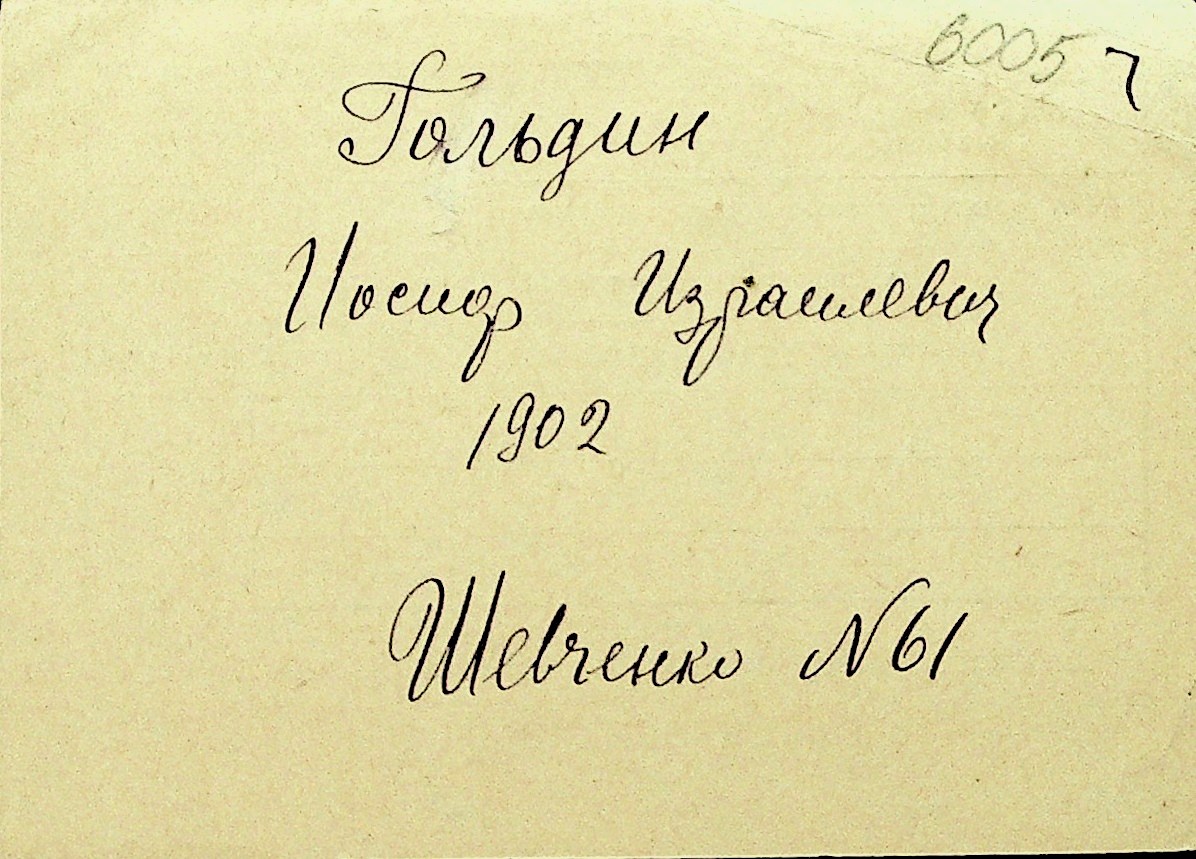 6005 7
Гольдин
Иосиф Израилевич
1902
Шевченко N 61